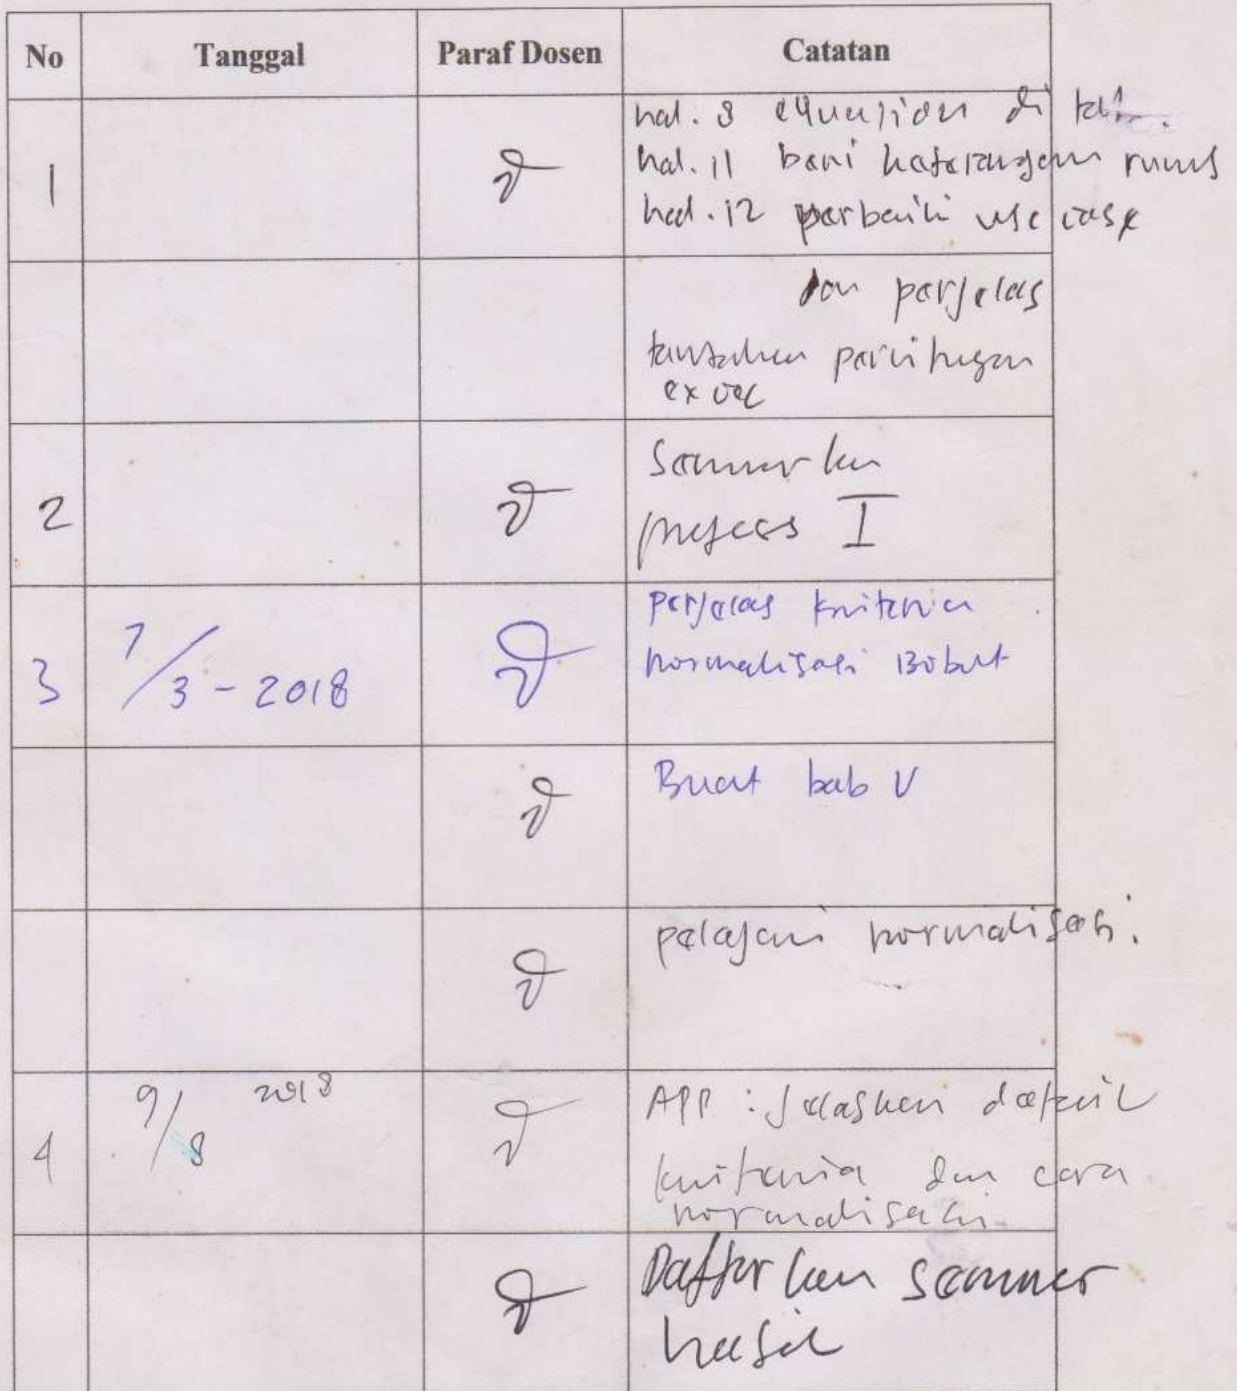 No Tanggal Paraf Dosen Catatan
1 hal. 8 equation di
hal. 11 beri keterangan rumus
hal. 12 perbaiki use case
dan perjelas
tambahkan perhitungan
excel
2 Seminarkan
progress I
3 7/3 - 2018 perjelas kriteria
normalisasi Bobot
Buat bab V
pelajari normalisasi.
4 9/8 2018 APP : jelaskan detail
kriteria dan cara
normalisasi
Daftarkan seminar
hasil